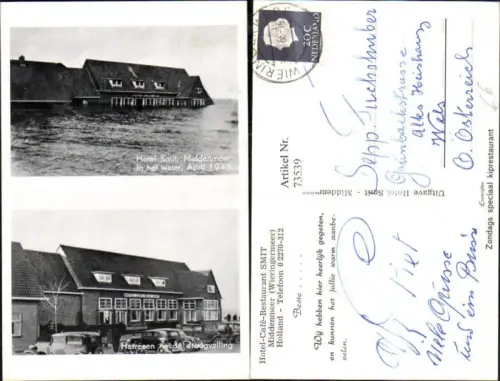 Hotel Smit, Middenmeer
In het water, April 1945
Herrezen na de droogvalling
Hotel-Café-Restaurant SMIT
Middenmeer (Wieringermeer)
Holland - Telefoon 0 2270-312
Beste . . . . .
Wij hebben hier heerlijk gegeten,
en kunnen het jullie warm aanbe-
velen.
Artikel Nr.
73539
Uitgave Hotel Smit - Middenmeer
NEDERLAND
20c
Sepp Tucholhuber
Altes Kreishaus
Wels
O. Österreich
Zondags speciaal kiprestaurant
Piet
Viele Grüsse
und ein Bussi